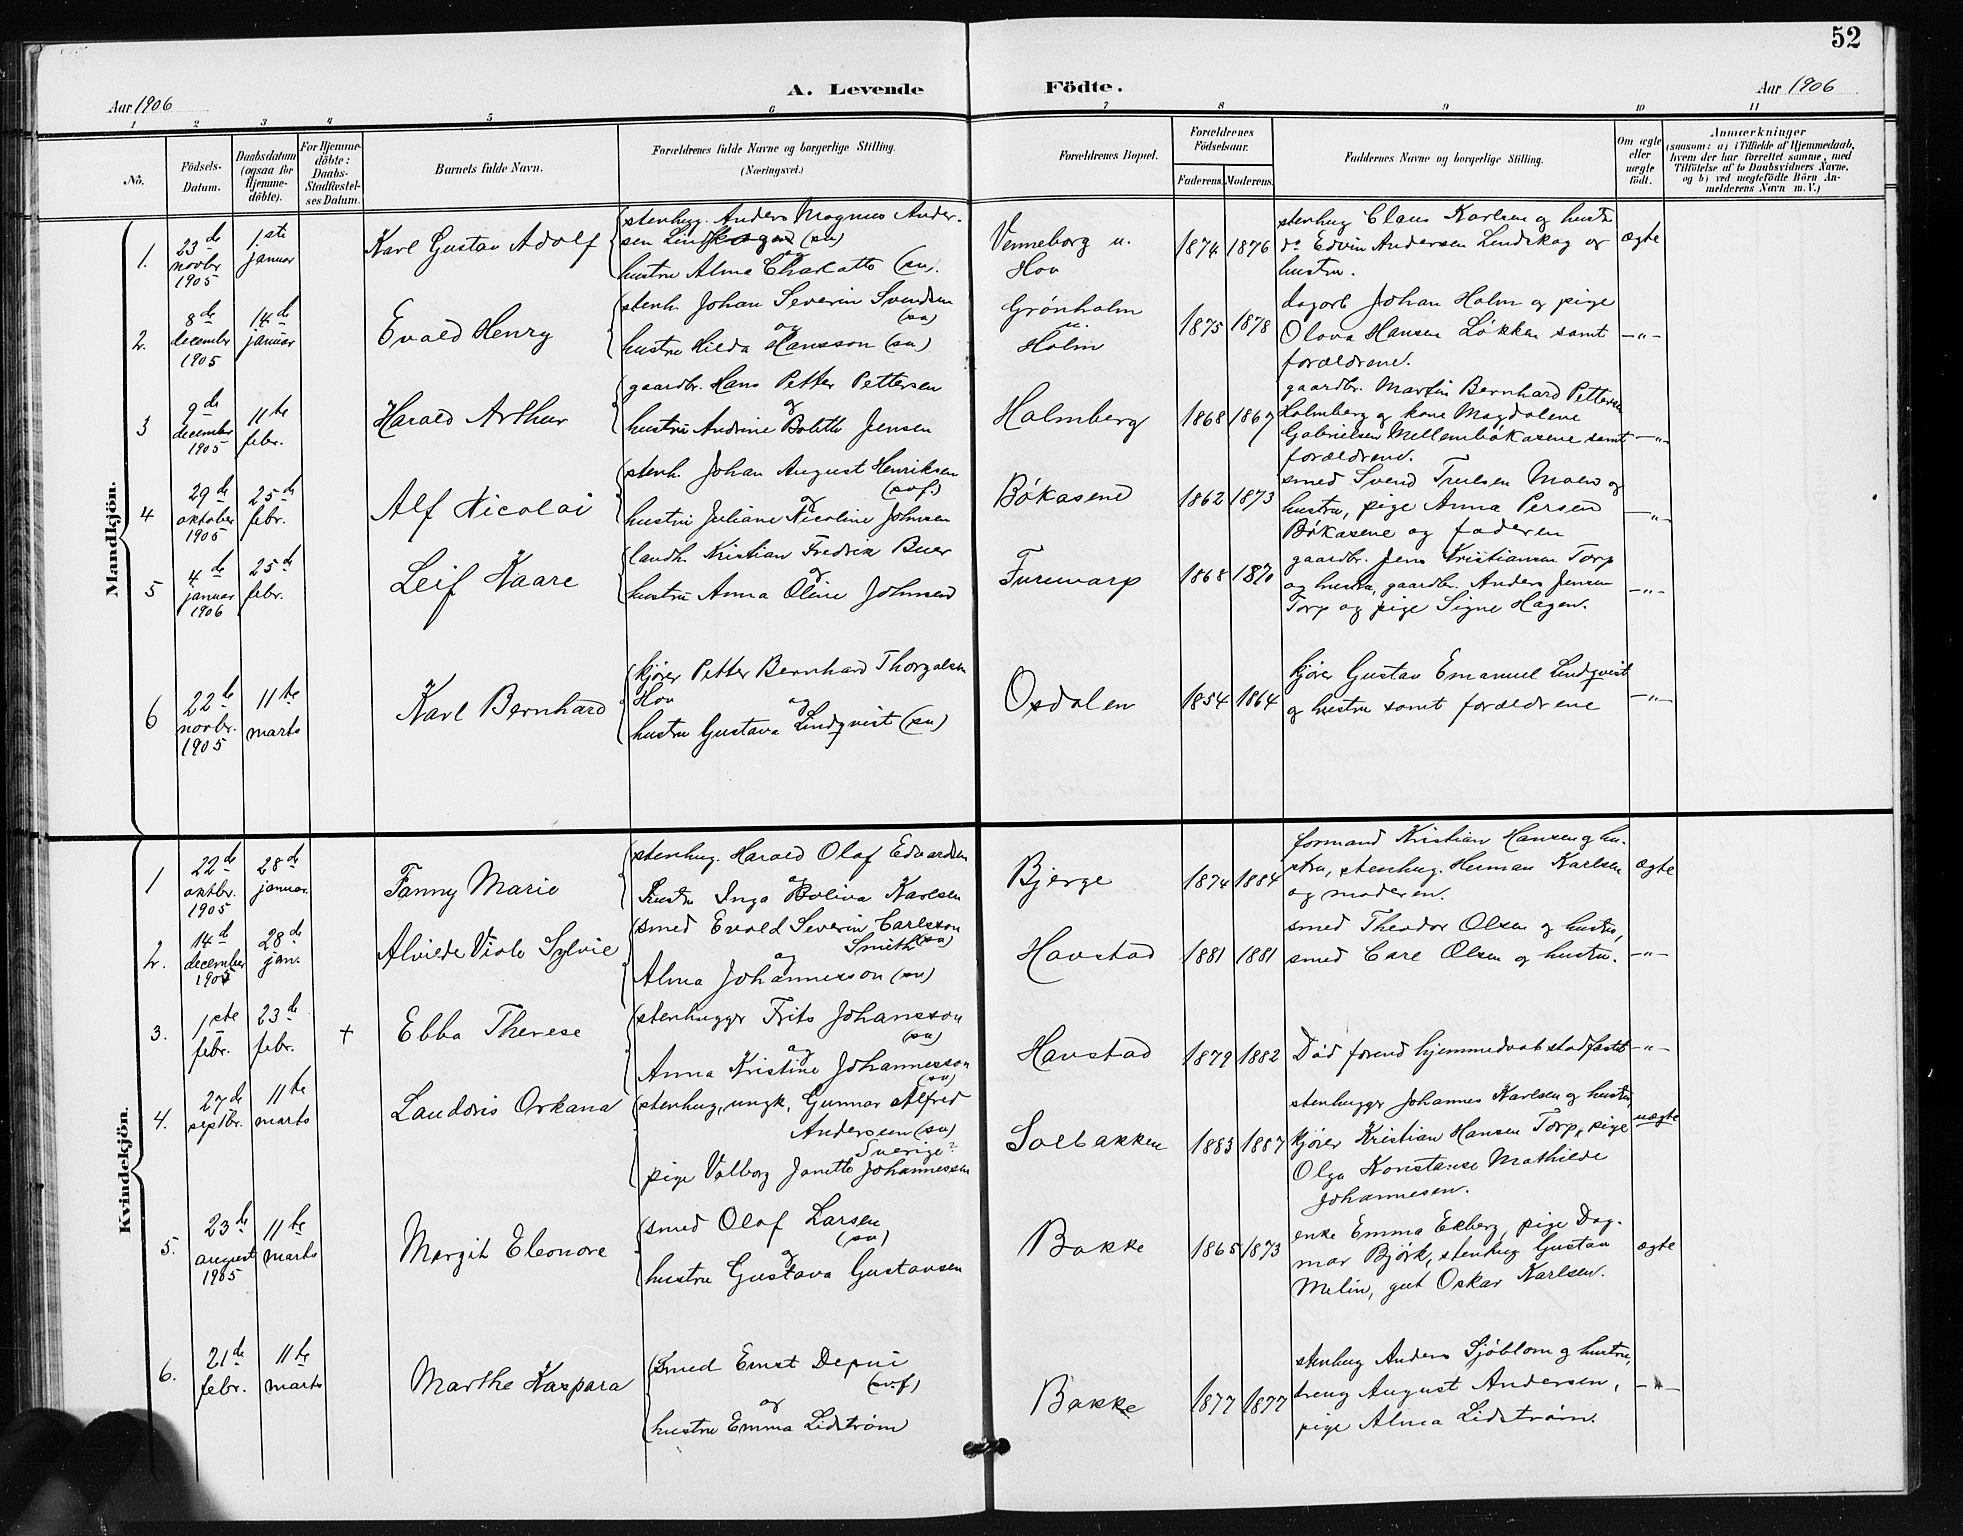 52
Aar 1906
A. Levende Födte.
Aar 1906
1 2 3 4 5 6 7 8 9 10 11
No.
Födsels-
Datum.
Daabsdatum
(ogsaa for
Hjemme-
döbte).
For Hjemme-
döbte:
Daabs-
Stadfæstel-
ses Datum.
Barnets fulde Navn.
Forældrenes fulde Navne og borgerlige Stilling.
(Næringsvei.)
Forældrenes Bopæl.
Forældrenes
Födselsaar.
Faderens. Moderens.
Faddernes Navne og borgerlige Stilling.
Om ægte
eller
uægte
födt.
Anmærkninger
(saasom: a) i Tilfælde af Hjemmedaab,
hvem der har forrettet samme, med
Tilföielse af to Daabsvidners Navne.
og b) ved uægtefödte Börn An-
melderens Navn m. V.)
Mandkjön.
1.
23de
novbr
1905
1ste
januar
Karl Gustav Adolf
stenhug. Anders Magnus Ander-
sen Lindskogen (su)
og
hustru Alma Charlotte (su).
Venneborg u.
Hov
1874 1876
stenhug Claus Karlsen og hustru
do Edvin Andersen Lindskog og
hustru.
ægte
2.
8de
decembr
1905
14de
januar
Evald Henry
stenh. Johan Severin Svendsen
(su)
og
hustru Hilda Hansson (su)
Grönholm
u.
Holm
1875 1878
dagarb Johan Holm og pige
Olava Hansen Løkken samt
forældrene.
-"-
3
9de
december
1905
11te
febr.
Harald Arthur
gaardbr. Hans Petter Pettersen
og
hustru Andrine Bolette Jensen
Holmberg
1868 1867
gaardbr. Martin Bernhard Pettersen
Holmberg og kone Magdalene
Gabrielsen Mellembökasene samt
forældrene.
-"-
4
29de
oktober
1905
25de
febr.
Alf Nicolai
stenh. Johan August Henriksen
(svf.)
og
hustru Juliane Nicoline Johnsen
Bökasene
1862 1873
smed Svend Trulsen Moen og
hustru, pige Anna Persen
Bökasene og faderen
-"-
5
4de
januar
1906
25de
febr.
Leif Kaare
landh. Kristian Fredrik Buer
og
hustru Anna Oline Johnsen
Furuvarp
1868 1870
gaardbr. Jens Kristiansen Torp
og hustru, gaardbr. Anders Jensen
Torp og pige Signe Hagen.
-"-
6
22de
novbr.
1905
11te
marts
Karl Bernhard
kjører Petter Bernhard Thorgalsen
Hov
og
hustru Gustava Lindqvist (su)
Osdalen
1854 1864
kjører Gustav Emanuel Lindqvist
og hustru samt forældrene
-"-
Kvindekjön.
1
22de
oktbr.
1905
28de
januar.
Fanny Marie
stenhug. Harald Olaf Edvardsen
og
hustru Inga Bolina Karlsen
Bjerge
1874 1884
formand Kristian Hansen og hu-
stru, stenhug. Herman Karlsen
og moderen.
ægte
2.
14de
december
1905
28de
jan.
Alviede Viola Sylvie
smed Evald Severin Carlsson
Smith (su)
og
Alma Johannesson (su)
Havstad
1881 1881
smed Theodor Olsen og hustru,
smed Carl Olsen og hustru.
-"-
3.
1ste
febr.
23de
febr.
+
Ebba Therese
stenhugger Frits Johansson
(su)
og
Anna Kristine Johannesson
(su)
Havstad
1879 1882
Død forend hjemmedaab stadfæstet
-"-
4.
27de
septbr.
11te
marts
Laudoris Orkana
stenhug, ungk, Gunnar Alfred
Andersen (su)
Sverige?
pige Valborg Janette Johannessen
Solbakken
1883 1887
stenhugger Johannes Karlsen og hustru,
kjører Kristian Hansen Torp, pige
Olga Konstanse Mathilde
Johannesen.
uægte
5.
23de
august
1905
11te
marts
Margit Eleonore
smed Olaf Larsen
(su)
og
hustru Gustava Gustavsen
Bakke
1865 1873
enke Emma Ekberg, pige Dag-
mar Björk, stenhug Gustav
Melin, gut Oskar Karlsen.
ægte
6.
21de
febr.
11te
marts
Marthe Kaspara
smed Ernst Depui
(svf)
og
hustru Emma Lidström
Bakke
1877 1877
stenhug Anders Sjöblom og hustru,
dreng August Andersen,
pige Alma Lidström.
-"-